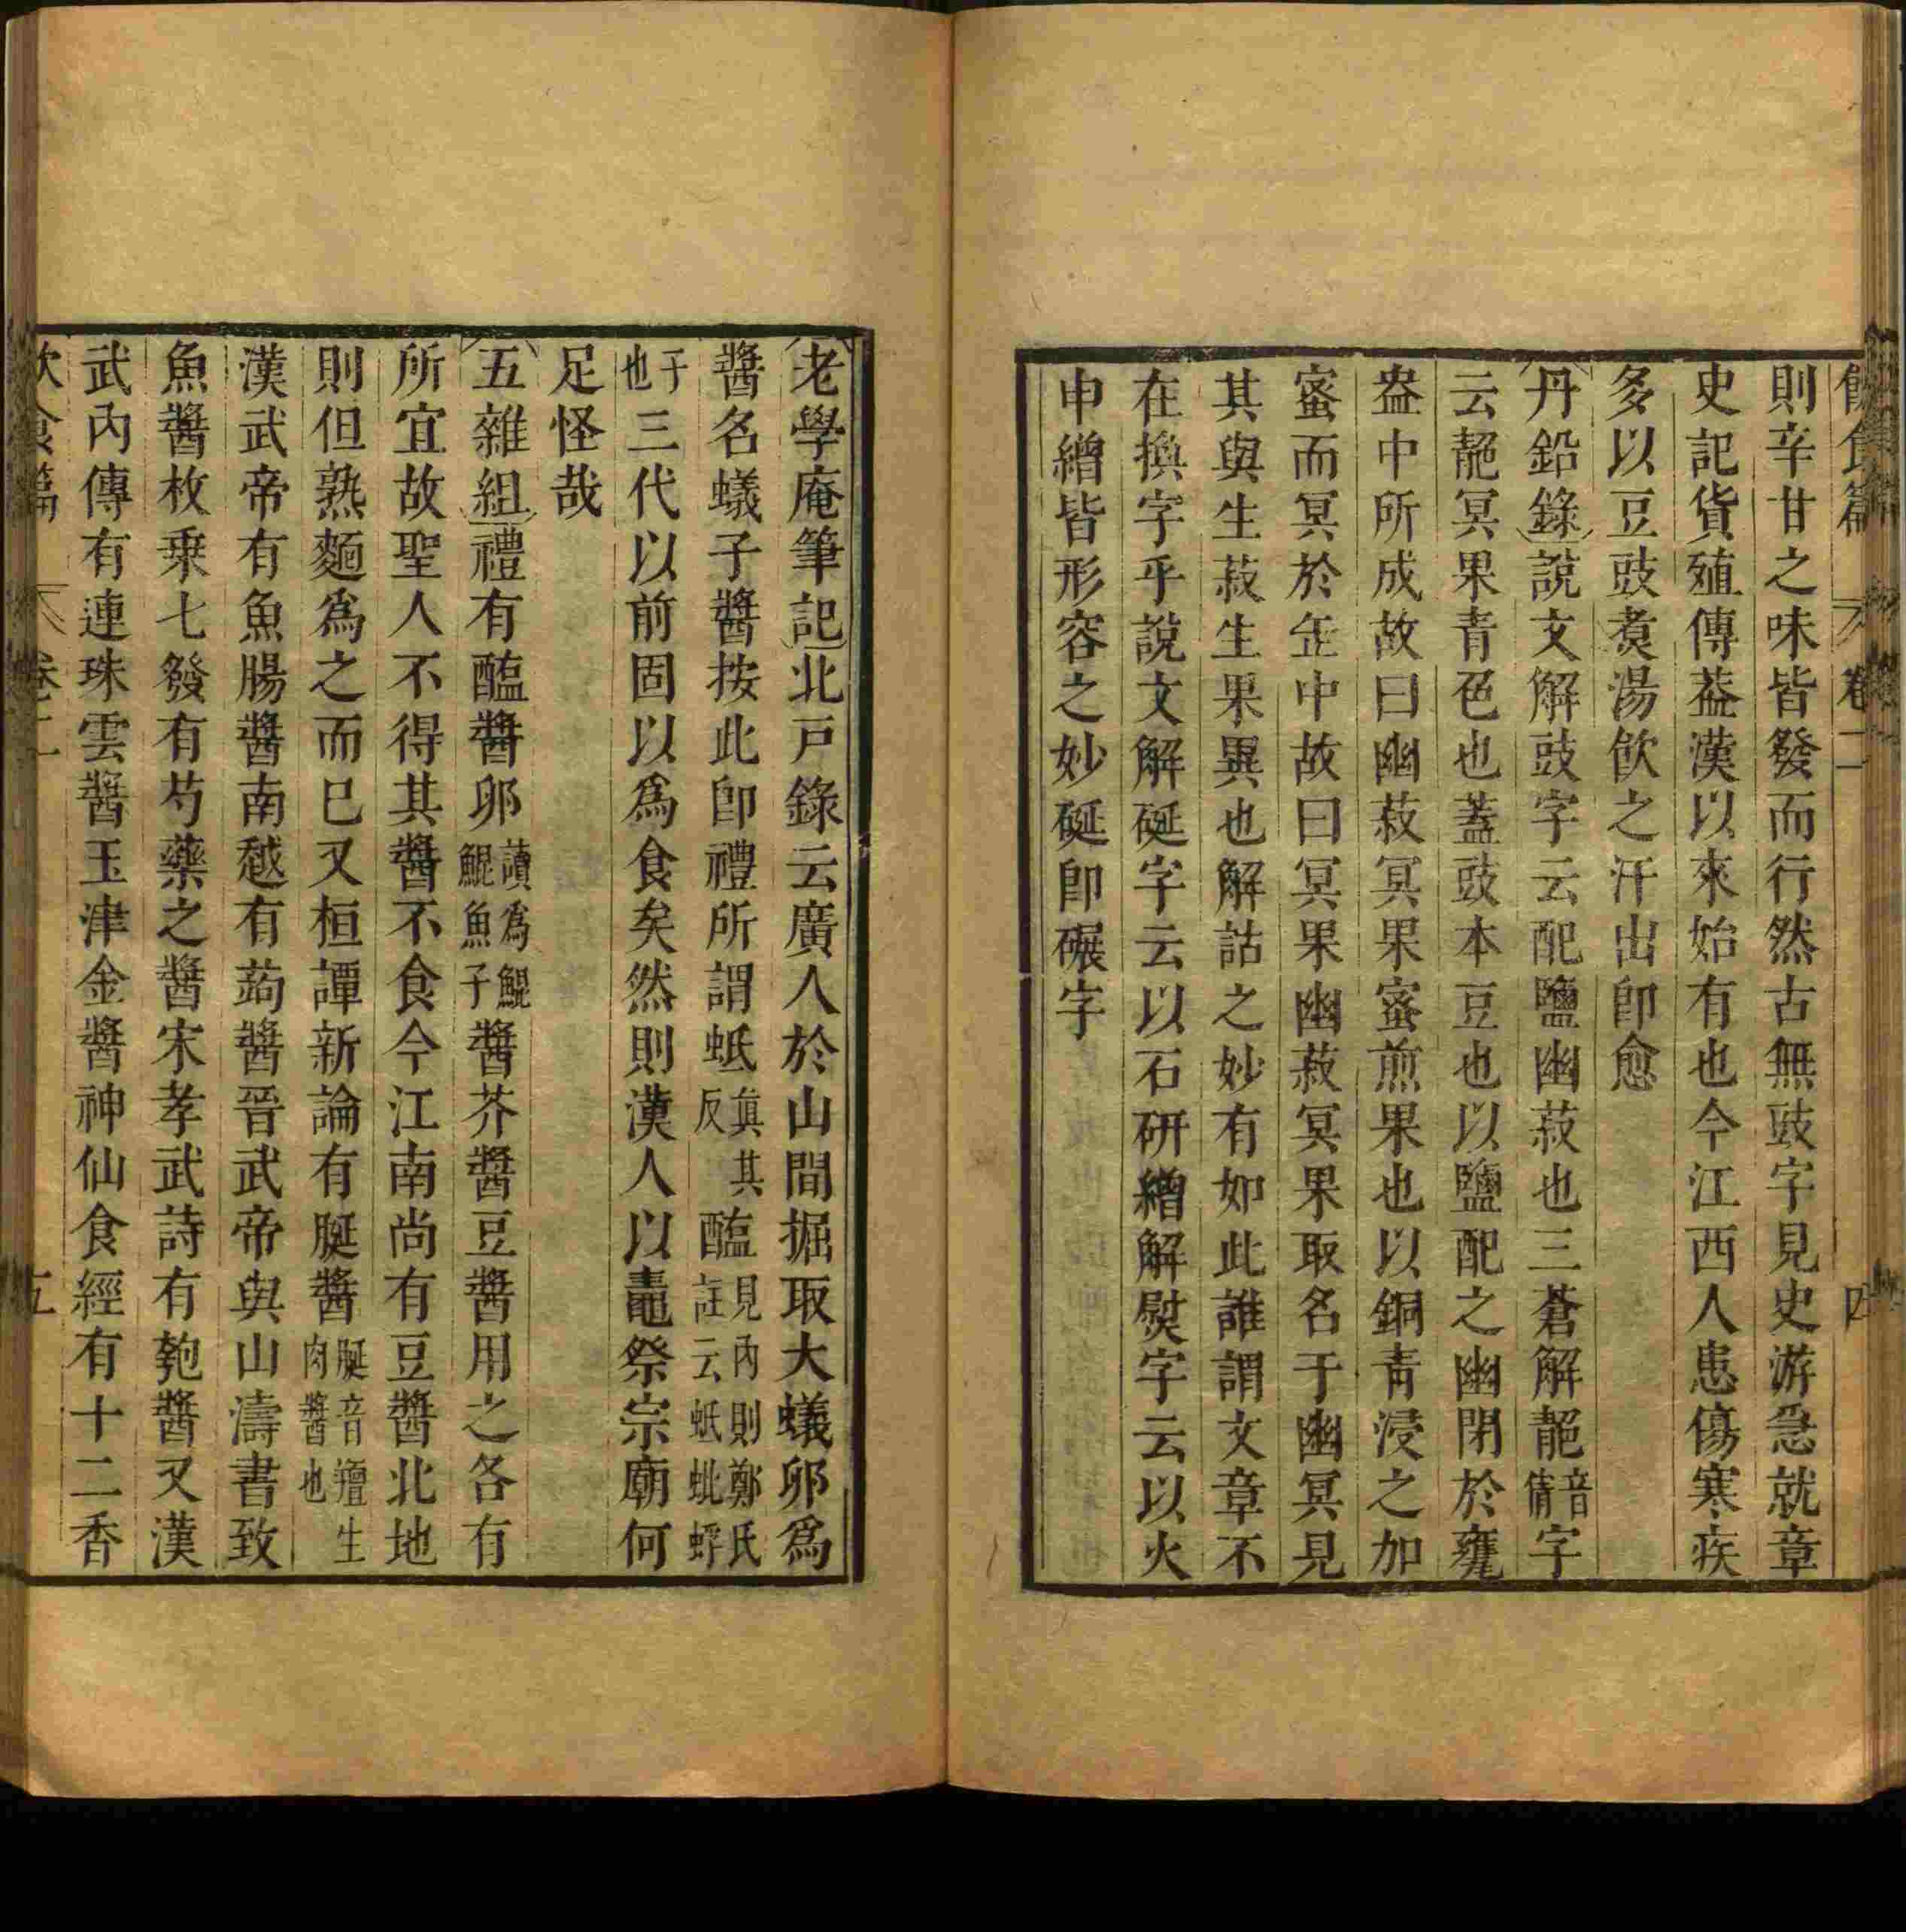 飲食篇 卷二 四
則辛甘之味皆發而行然古無豉字見史游急就章
史記貨殖傳葢漢以來始有也今江西人患傷寒疾
多以豆豉煑湯飮之汗出卽愈
丹鉛錄說文解豉字云配鹽幽菽也三蒼解䒌音倩字
云䒌冥果青色也蓋豉本豆也以鹽配之幽閉於甕
盎中所成故曰幽菽冥果蜜煎果也以銅靑浸之加
蜜而冥於缶中故曰冥果幽菽冥果取名于幽冥見
其與生菽生果異也解詁之妙有如此誰謂文章不
在換字乎說文解硟字云以石研繒解熨字云以火
申繒皆形容之妙硟卽碾字
老學庵筆記北戸錄云廣人於山間掘取大蟻卵爲
醬名蟻子醬按此卽禮所謂蚳眞其反醢見內則鄭氏註云蚳蚍蜉
子也三代以前固以爲食矣然則漢人以鼃祭宗廟何
足怪哉
五雜組禮有醢醬卵讀爲鯤鯤魚子醬芥醬豆醬用之各有
所宜故聖人不得其醬不食今江南尚有豆醬北地
則但熟麵爲之而巳又桓譚新論有脠醬脠音羶生肉醬也
漢武帝有魚腸醬南越有蒟醬晉武帝與山濤書致
魚醬枚乗七發有芍藥之醬宋孝武詩有匏醬又漢
武內傳有連珠雲醬玉津金醬神仙食經有十二香
飲食篇 卷二 五